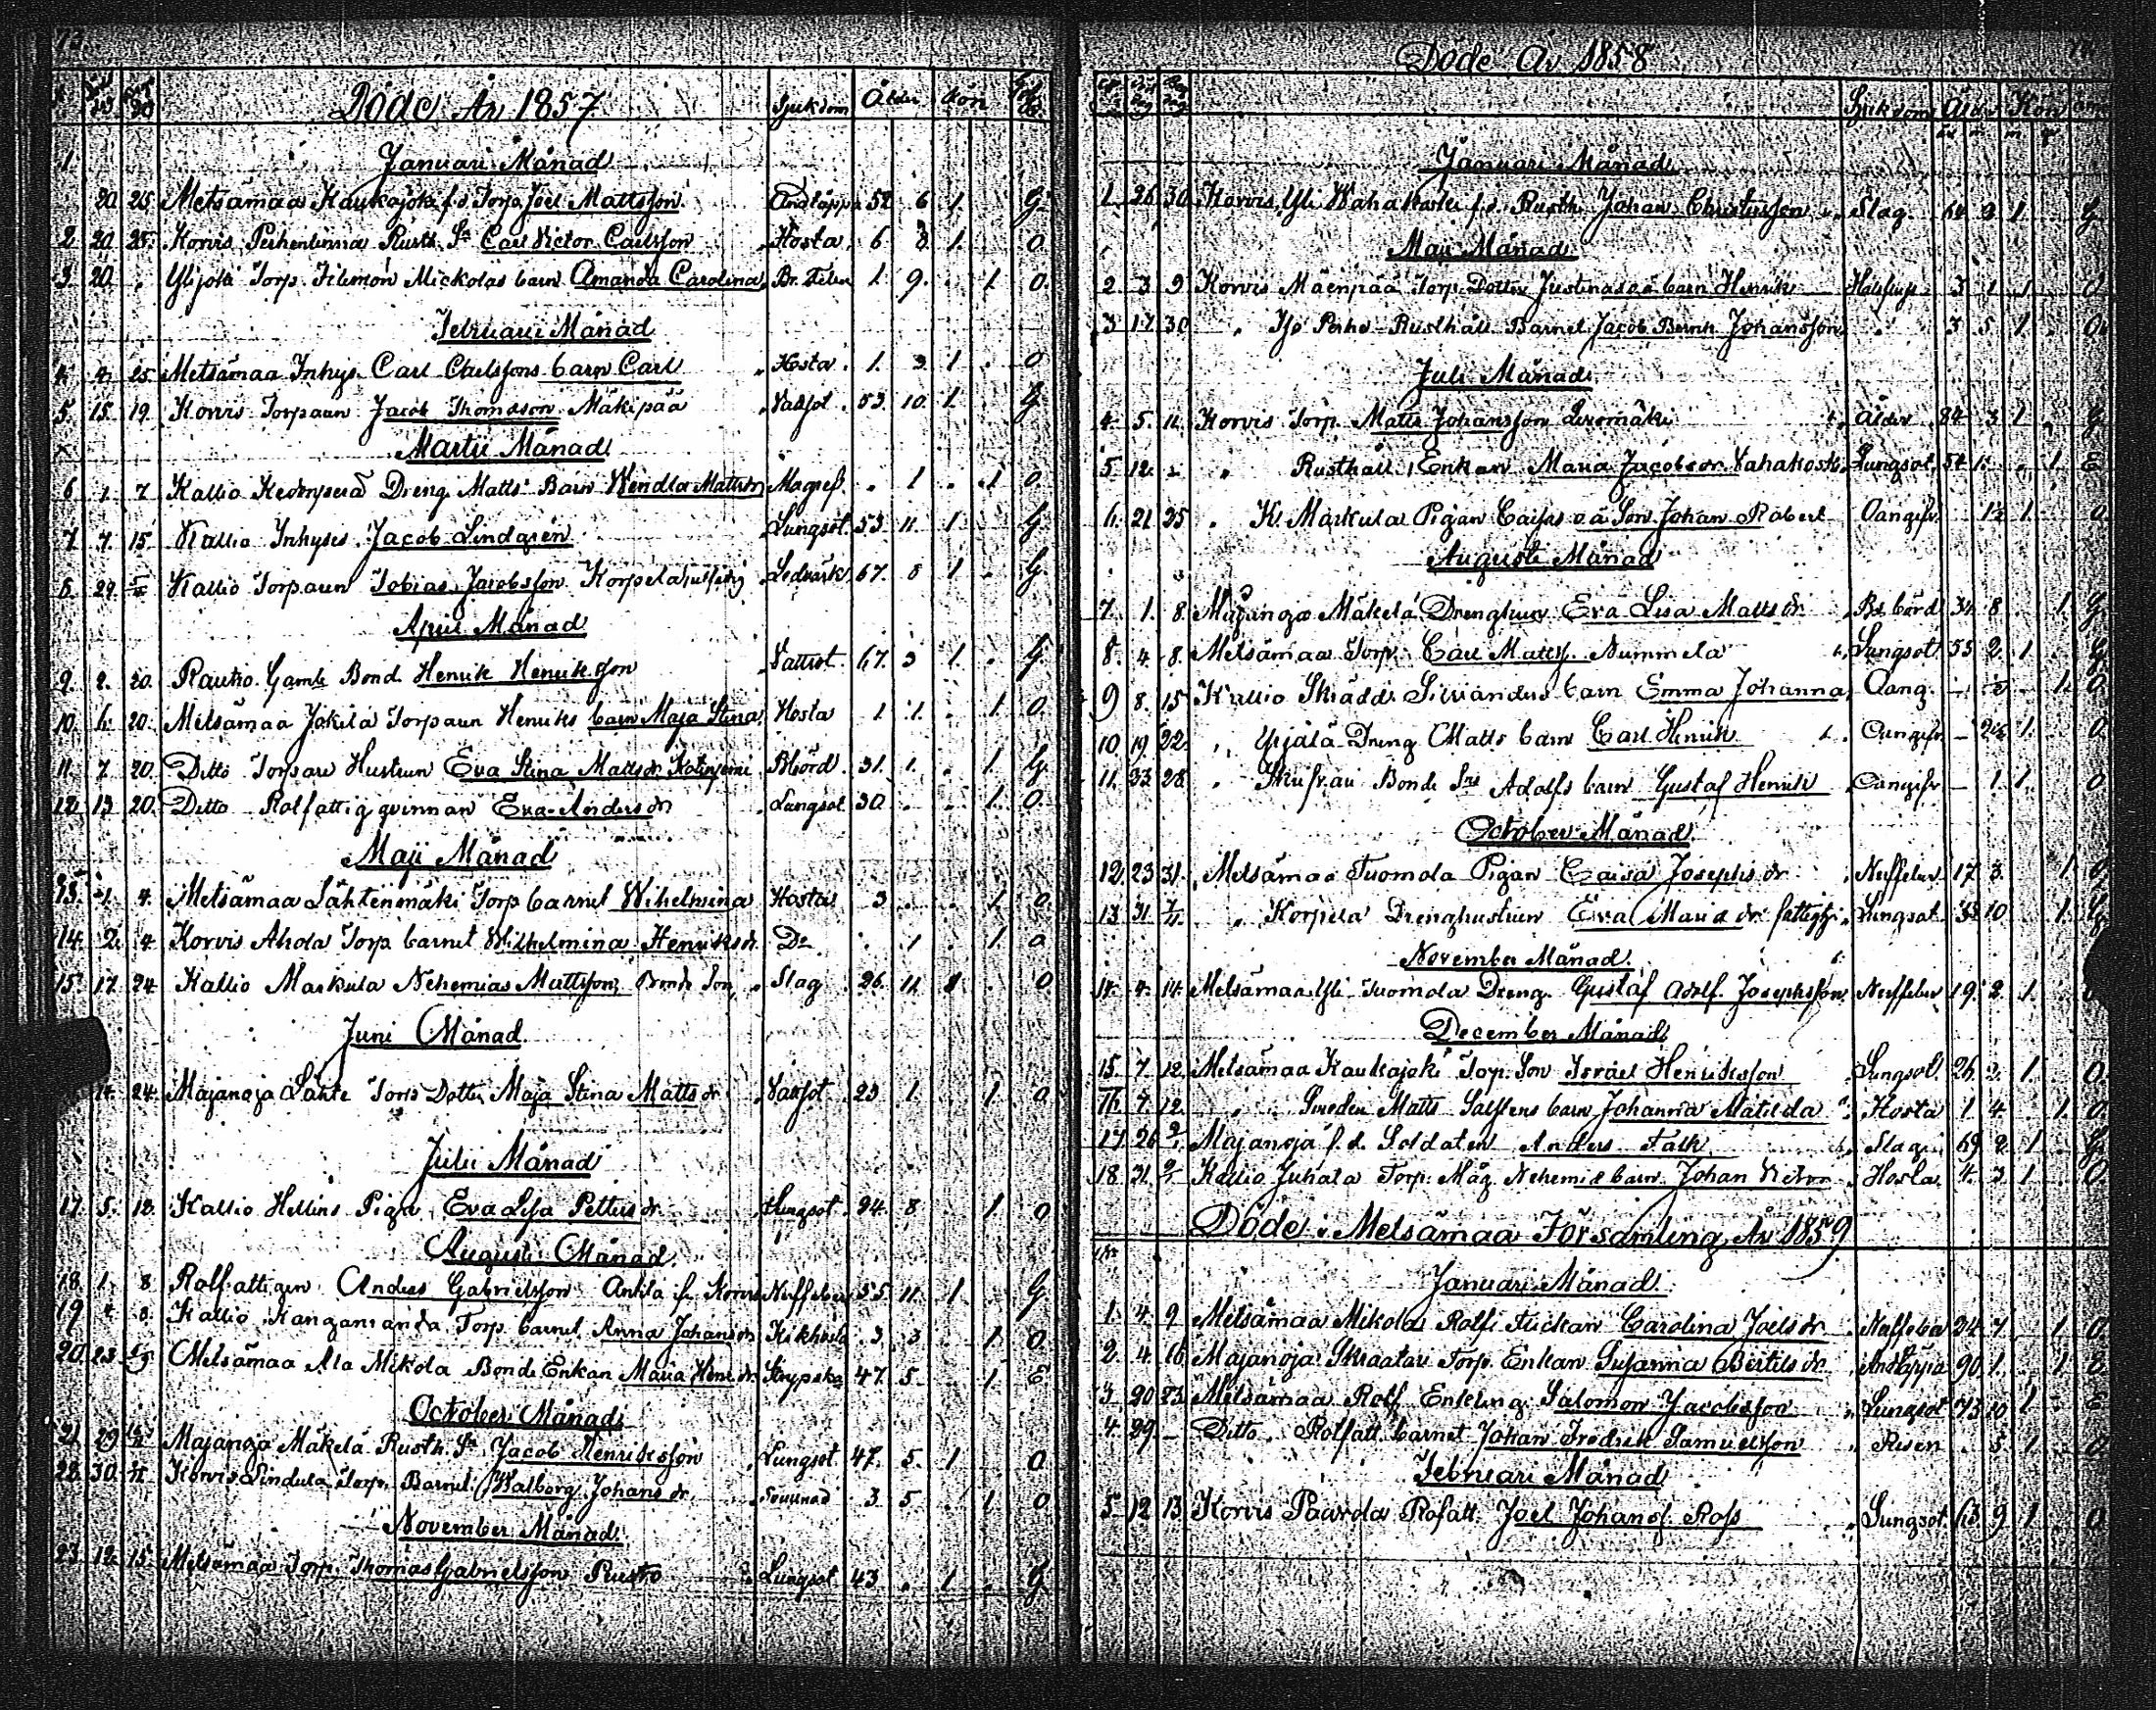 73.
Döde År 1857 Sjukdom Ålder Kön
1. Januari Månad
20 25 Metsämaa Kaukajoki f.d. Torp. Joel Mattsson Andtäppa 52 6 1. G.
2 20 25 Korvis Perhenlinna Rusth. Sn Carl Victor Carlsson Hosta 6 8 1. O.
3. 20 " Ylijoki Torp. Filemon Mickolas barn Amanda Carolina Br. Feber 1. 9. 1 O.
Februari Månad
4. 4. 25 Metsämaa Inhys. Carl Carlssons barn Carl Hosta 1. 3 1 O
5 15. 19. Korvis Torparen Jacob Thomasson Mäkipää Vatsot 53. 10. 1. G
Martii Månad
6 1. 7 Kallio Dreng Matts Barn Wendla Mattsdr Magref. . 1 . 1 O
7. 7. 15 Kallio Inhyses Jacob Lindgrén Lungsot 53. 11. 1 G
8. 29. Kallio Torparen Tobias Jacobsson Korpela Ledvärk 67. 8 1 G.
April Månad
9. 2. 20. Rautio Gamle Bond. Henrik Henriksson Vattsot. 67. 3 1. G.
10. 6. 20. Metsämaa Jokela Torparen Henriks barn Maja Stina Hosta 1. 1. 1 O.
11. 7. 20. Ditto Torpare Hustrun Eva Stina Mattsdr Blörd. 31. 1. 1. G
12. 13. 20. Ditto Rotfattig qvinnan Eva Andersdr Lungsot 30. . 1. O.
Maji Månad
13. 1. 4. Metsämaa Lähtenmäki Torp barnet Wilhelmina Hosta 3 . 1 O.
14. 2. 4 Korvis Ahola Torp barnet Wilhelmina Henriksdr. Do . 1 1 O
15. 17. 24. Kallio Markula Nehemias Mattsson Bonde Son Slag 26. 11. 1 O
Juni Månad
14. 24. Majanoja Lähte Torp. Dotter Maja Stina Mattsdr Vatsot 23 1. 1 O
Julii Månad
17. 5. 12. Kallio Hellins Piga Eva Lisa Pettersdr. Lungsot 24. 8 1 O
Augusti Månad
18. 1. 8 Rotfattigen Anders Gabrielsson Antila fr. Korvis Nerffeber 55. 11 1 G
19 4. 8. Kallio Kanganranda Torp. barnet Anna Johansdr Kikhosta 3. 3 1 O
20. 23 Metsämaa Ala Mikola Bonde Enkan Maria Henr.dr. 47. 5. 1 E
October Månad
21. 29 Majanoja Mäkelä Rusth. Sn Jacob Henriksson Lungsot 47. 5. 1 O
22. 30. Korvis Lindula Torp. Barnet Walborg Johansdr. 3 5 1 O
November Månad
23. 12. 15. Metsämaa Torp. Thomas Gabrielsson Rusto Lungsot 43 . 1 G
Döde År 1858
Sjukdom Ålder Kön
Januari Månad
1. 26 30 Korvis Yli Wahakoski f.d. Rusth. Johan Christersson Slag. 64 3 1 G.
Maii Månad
2. 3 9 Korvis Mäenpää Torp. Dotter Justinas oä barn Henrik 3 1 1 O
3 17 30 " Iso Perho Rusthåll. Barnet Jacob Bernh. Johansson " 3 5 1 O.
Juli Månad
4. 5. 11. Korvis Torp. Matts Johansson Ålder 84 3 1 G.
5 12. " Rusthåll. Enkan Maria Jacobsdr. Vahakoski Lungsot 54 1. 1. E
6. 21 25 " K. Markula Pigan Caisas oä Son Johan Robert Oangifv. 1½ 1. O
Augusti Månad
7. 1. 8. Majanoja Mäkelä Drenghun Eva Lisa Mattsdr. Bs. börd 34. 8 1. G.
8. 4. 8. Metsämaa Torp. Carl Matts. Nummela Lungsot 55 2. 1 G.
9 8. 15 Kallio Skrädd. Silvanders barn Emma Johanna Oang. 1. O.
10 19 22. " Yrjälä Dreng Matts barn Carl Henrik Oangifv. 1. O
11. 23 28 " Bonde Sns Adolfs barn Gustaf Henrik Oangifv 1 1. O
October Månad
12. 23 31. Metsämaa Tuomola Pigan Caisa Josephsdr. Nerffeber 17 3. 1. O.
13 31 " Korpela Drenghustrun Eva Maria dr. fattighj. Lungsot 38 10 1. G
November Månad.
14. 4. 14. Metsämaa Yli Tuomola Dreng. Gustaf Adolf Josephsson Nerffeber 19 2. 1.
December Månad
15 7 12. Metsämaa Kaukajoki Torp. Son Israel Henriksson Lungsot. 26 3. 1. O.
16. 7. 12. " Smeden Matts Salstens barn Johanna Matilda Hosta 1 4 1. O.
17 26 Majanoja f.d. Soldaten Anders Falk Slag 69. 2. 1 G.
18. 31. Kallio Juhala Torp. Måg Nehemie barn Johan Victor Hosta 4. 3 1 O.
Döde i Metsämaa Församling År 1859
Januari Månad
1. 4. 9 Metsämaa Mikola Rotf. flickan Carolina Joelsdr Nerffeber 24 7. 1 O.
2. 4. 16. Majanoja Skraatari Torp. Enkan Susanna Bertilsdr. Andtäppa 90. 1. 1 E
3 20 23 Metsämaa Rotf. Enkling Salomon Jacobsson Lungsot 75 10 1 E
4. 29. Ditto Rotfatt. barnet Johan Fredrik Samuelsson Risen 5. 1. O
Februari Månad
5 12 13 Korvis Paavola Rofatt. Joel Johans. Ross Lungsot 63 9 1 O